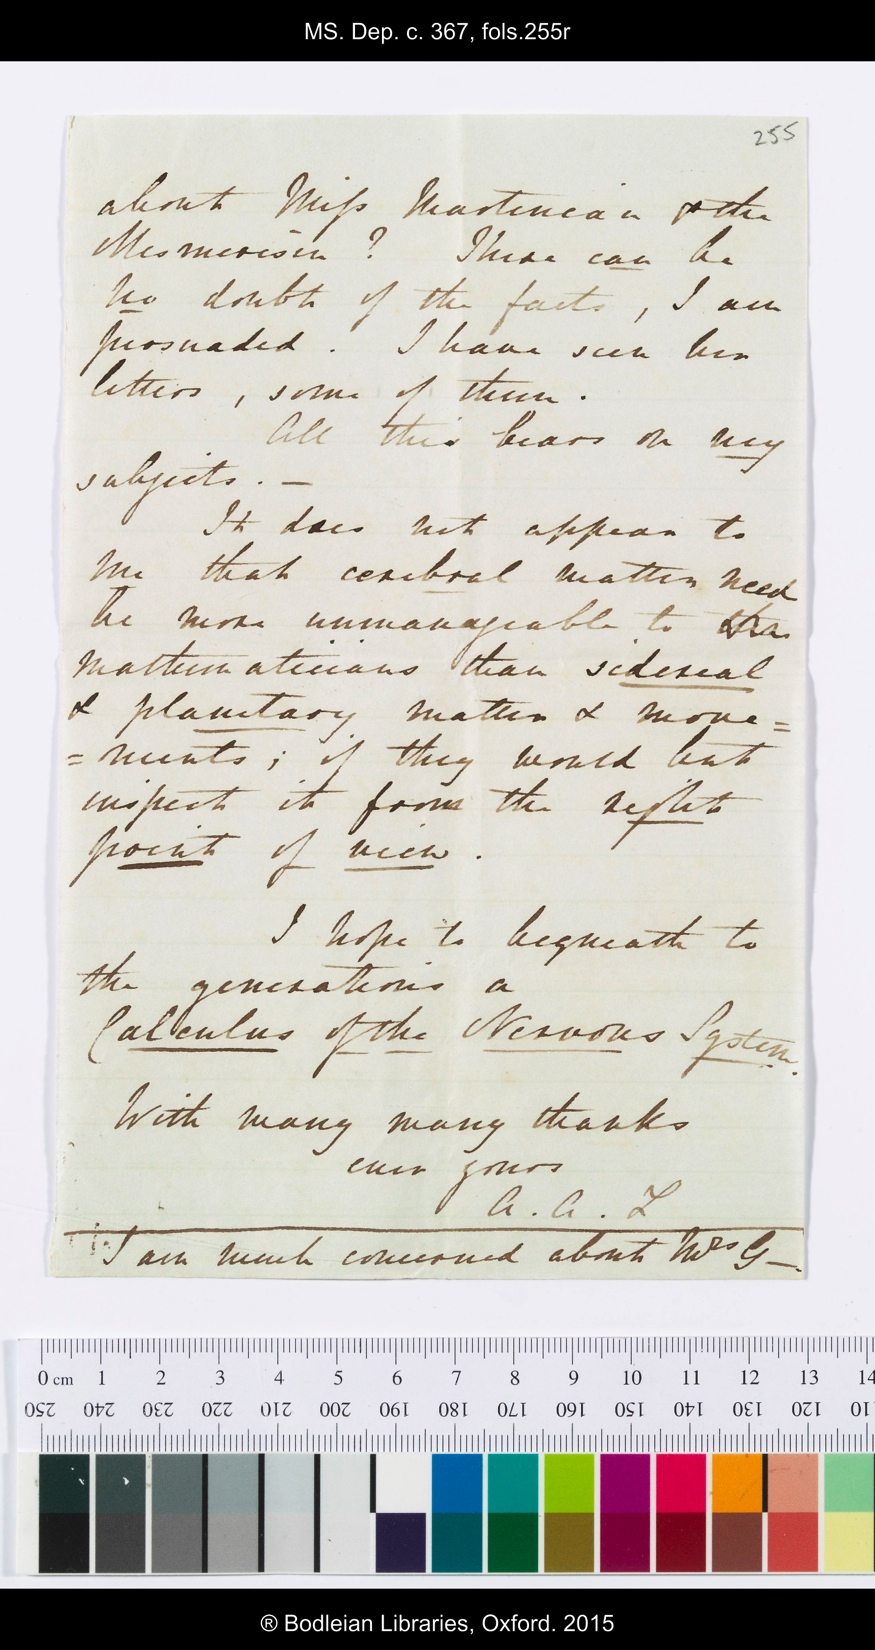 MS. Dep. c. 367, fols.255r
255
about Miss Martineau & the
Mesmerism? There can be
no doubt of the facts, I am
persuaded. I have seen her
letters, some of them.
All this bears on my
subjects. —
It does not appear to
me that cerebral matter need
be more unmanageable to the
mathematicians than sidereal
& planetary matter & move=
=ments; if they would but
inspect it from the right
point of view.
I hope to bequeath to
the generations a
Calculus of the Nervous System.
With many many thanks
ever yours
A. A. L
I am much concerned about Mrs G—.
0 cm 1 2 3 4 5 6 7 8 9 10 11 12 13 14
250 240 230 220 210 200 190 180 170 160 150 140 130 120 110
® Bodleian Libraries, Oxford. 2015